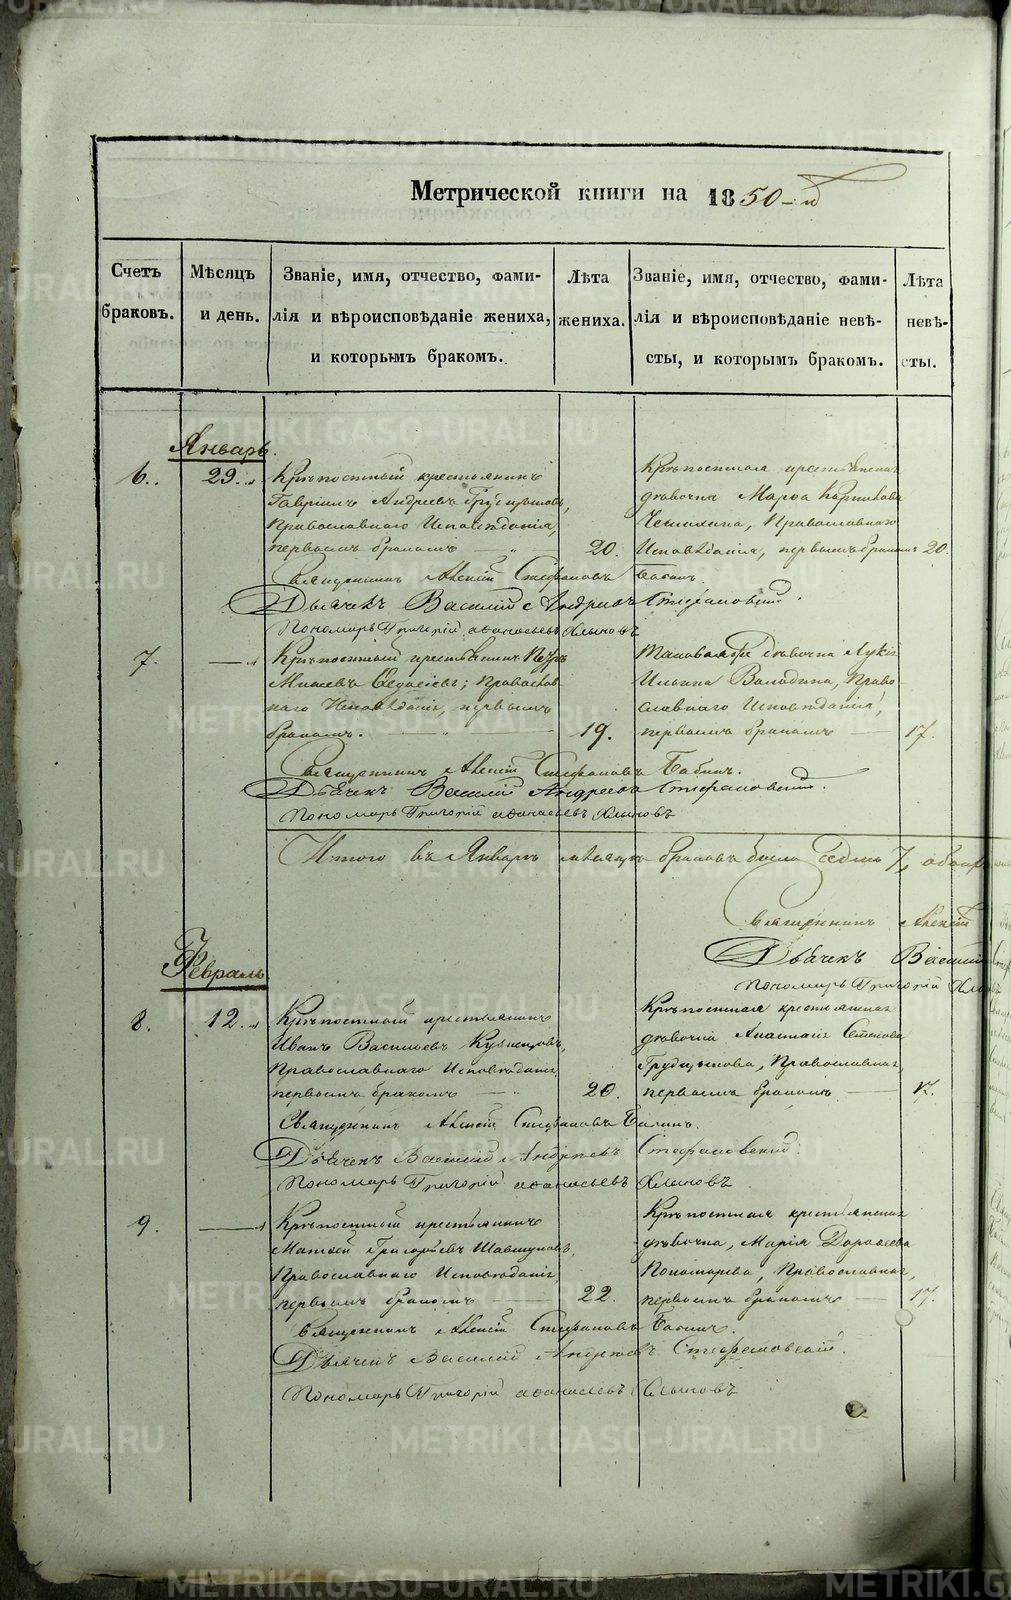 Метрической книги на 1850-й
Счетъ браковъ.
Мѣсяцъ и день.
Званіе, имя, отчество, фамилія и вѣроисповѣданіе жениха, и которымъ бракомъ.
Лѣта жениха.
Званіе, имя, отчество, фамилія и вѣроисповѣданіе невѣсты, и которымъ бракомъ.
Лѣта невѣсты.
Январь.
6.. 29.. Крѣпостный крестьянинъ
Гавріилъ Андреевъ
Православнаго Исповѣданія,
первымъ бракомъ 20.
Крѣпостная крестьянская
дѣвочка Марѳа
Православнаго
Исповѣданія, первымъ бракомъ 20.
Священникъ Алексій Стефановъ Бабинъ.
Дьячекъ Василій Андреевъ Стефановскій.
Пономарь Григорій Афанасьевъ Хлыновъ
7. Крѣпостный крестьянинъ Петръ
Моисеевъ Ѳедосіевъ; Православ
наго Исповѣданія, первымъ
бракомъ. 19.
Таковая дѣвочка
Ильина Володина, Право
славнаго Исповѣданія,
первымъ бракомъ 17.
Священникъ Алексій Стефановъ Бабинъ.
Дьячекъ Василій Андреевъ Стефановскій.
Пономарь Григорій Афанасьевъ Хлыновъ
Итого въ Январѣ мѣсяцѣ браковъ было седмь 7,
Священникъ Алексій
Дьячекъ Василій
Пономарь Григорій
Февраль
8. 12.. Крѣпостный крестьянинъ
Иванъ Васильевъ Кузнецовъ,
Православнаго Исповѣданія,
первымъ бракомъ 20.
Крѣпостная крестьянская
Анастасія Семенова
Православная,
первымъ бракомъ 17.
Священникъ Алексій Стефановъ Бабинъ.
Дьячекъ Василій Андреевъ Стефановскій
Пономарь Григорій Афанасьевъ Хлыновъ
9. Крѣпостный крестьянинъ
Матѳей Григорьевъ
Православнаго Исповѣданія
первымъ бракомъ 22.
Крѣпостная крестьянская
дѣвочка, Марія Дороѳеева
Пономарева, Православная,
первымъ бракомъ 17.
Священникъ Алексій Стефановъ Бабинъ.
Дьячекъ Василій Андреевъ Стефановскій.
Пономарь Григорій Афанасьевъ Хлыновъ
METRIKI.GASO-URAL.RU